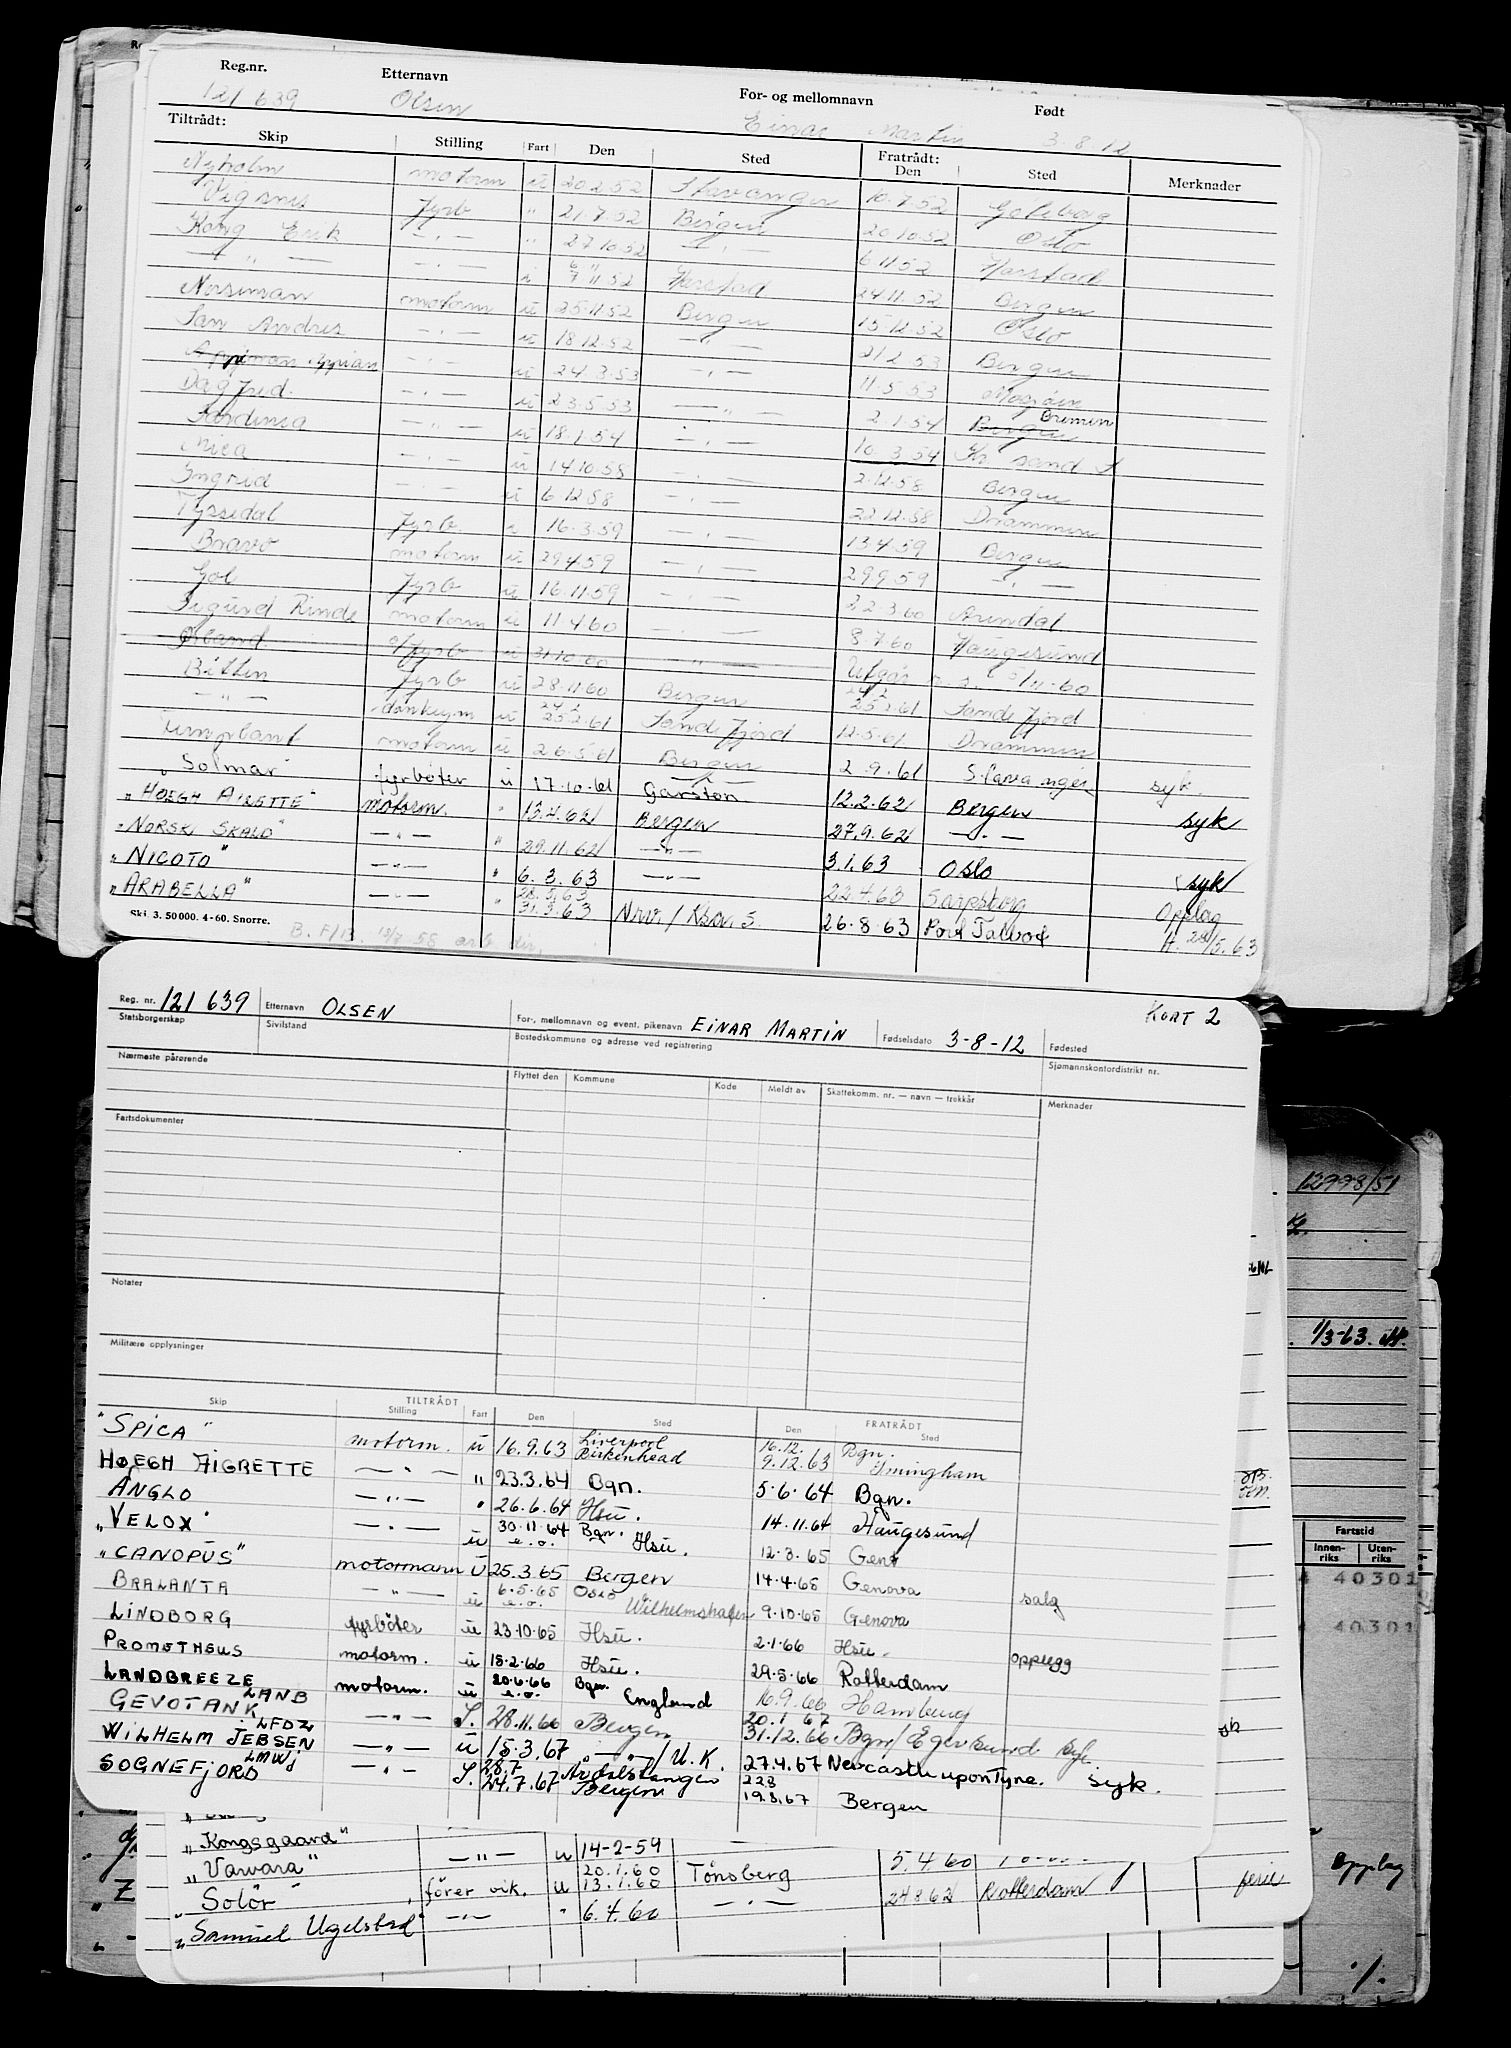 Reg.nr. Etternavn For- og mellomnavn Født
121 639 Olsen Einar Martin 3.8.12
Tiltrådt: Fratrådt:
Skip Stilling Fart Den Sted Den Sted Merknader
Nyholm motorm u 20.2.52 Stavanger 10.7.52 Gøteborg
Vigsnes fyrb " 21.7.52 Bergen 20.10.52 Oslo
Kong Erik — " — " 27.10.52 — " — 6.11.52 Harstad
— " — — " — i 6/7 11.52 Harstad 24.11.52 Bergen
Norseman motorm u 25.11.52 Bergen 15.12.52 Oslo
San Andres — " — u 18.12.52 — " — 21.2.53 Bergen
Appian — " — u 24.3.53 — " — 11.5.53
Dagfred — " — u 23.5.53 — " — 2.1.54 Bergen Bremen
Sardinia — " — u 18.1.54 — " — 10.3.54 Kr sand S
Nica — " — u 14.10.58 — " — 2.12.58 Bergen
Ingrid — " — u 6.12.58 — " — 22.12.58 Drammen
Tyssedal fyrb. u 16.3.59 — " — 13.4.59 Bergen
Bravo motorm u 29.4.59 — " — 29.9.59 — " —
Gol fyrb u 16.11.59 — " — 22.3.60 Arendal
Sigurd Rinde motorm u 11.4.60 — " — 8.7.60 Haugesund
fyrb u 31.10.60 — " — Utgår
Bitten fyrb u 28.11.60 Bergen 24.2 25.2.61 Sandefjord
— " — donkeym u 24.2 25.2.61 Sandefjord 12.5.61 Drammen
motorm u 26.5.61 Bergen 2.9.61 Stavanger syk.
Solmar fyrbøter u 17.10.61 Garston 12.2.62 Bergen syk
"HØEGH AIRETTE" motorm. " 13.4.62 Bergen 27.9.62 — " —
"NORSK SKALD" — " — " 29.11.62 — " — 3.1.63 Oslo syk
"NICOTO" — " — " 6.3.63 — " — 22.4.63 Sarpsborg Opplag
"ARABELLA" — " — " 28.5.63 31.5.63 Nrv. / 26.8.63 Port Talbot H. 28/5.63
Ski. 3. 50 000. 4-60. Snorre.
B. F/13. 18/7 58 arb. dir.
KORT 2
Reg. nr. 121 639 Etternavn OLSEN For-, mellomnavn og event. pikenavn EINAR MARTIN Fødselsdato 3-8-12 Fødested
Statsborgerskap Sivilstand Bostedskommune og adresse ved registrering Sjømannskontordistrikt nr.
Nærmeste pårørende Flyttet den Kommune Kode Meldt av Skattekomm. nr. — navn — trekkår Merknader
Fartsdokumenter
Notater
Militære opplysninger
TILTRÅDT FRATRÅDT
Skip Stilling Fart Den Sted Den Sted
"SPICA" motorm. u 16.9.63 Liverpool Birkenhead 16.12. 9.12.63 Bgn. Imingham
HØEGH AIGRETTE — " — " 23.3.64 Bgn. 5.6.64 Bgn.
ANGLO — " — " 26.6.64 Hsu. 14.11.64 Haugesund
"VELOX" — " — u 30.11.64 e.o. Bgn. Hsu. 12.3.65 Gent
"CANOPUS" motormann u 25.3.65 Bergen 14.4.65 Genova salg
BRALANTA — " — u 6.5.65 e.o. Oslo Wilhelmshafen 9.10.65 Genova
LINDBORG fyrbøter u 23.10.65 Hsu. 2.1.66 Hsu. opplegg
PROMETHEUS motorm. u 15.2.66 Hsu. 29.5.66 Rotterdam
LANDBREEZE LANB motorm. u 20.6.66 e.o. Bgn. England 16.9.66 Hamburg
GEVOTANK LFDZ — " — S. 28.11.66 Bergen 20.1.67 31.12.66 Bgn / Egersund syk.
WILHELM JEBSEN LMWJ — " — u 15.3.67 — " — / U.K. 27.4.67 Newcastle upon Tyne. syk.
SOGNEFJORD — " — S. 28.7 24.7.67 Årdalstangen Bergen 22.8 19.8.67 Bergen
"Kongsgaard" — " — u 14-2-59
"Varvara" 20.1.60 5.4.60
"Solør" fører vik. u 13.1.60 Tønsberg 24.8.62 Rotterdam ferie
"Samuel Ugelstad" — " — " 6.4.60 — " —
12998/51
1/3-63. H.
Fartstid
Innen-riks Uten-riks
40301
40301
Opplag